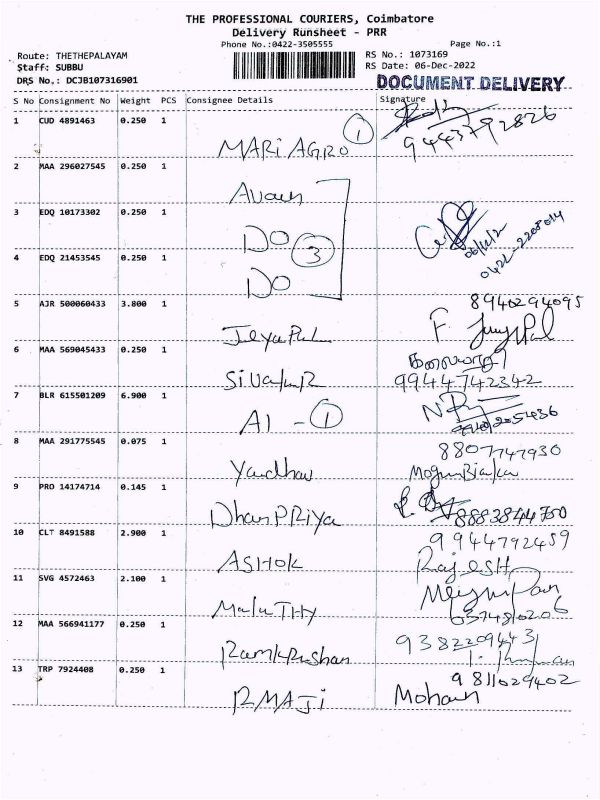 THE PROFESSIONAL COURIERS, Coimbatore
Delivery Runsheet - PRR
Phone No.:0422-3505555
Page No.:1
Route: THETHEPALAYAM
RS No.: 1073169
Staff: SUBBU
RS Date: 06-Dec-2022
DRS No.: DCJB107316901
DOCUMENT DELIVERY
S No Consignment No Weight PCS Consignee Details Signature
1 CUD 4891463 0.250 1
MARI AGRO 1
9443792826
2 MAA 296027545 0.250 1
3 EDQ 10173302 0.250 1
DO 3
4 EDQ 21453545 0.250 1
DO
5 AJR 500060433 3.800 1
8940294095
6 MAA 569045433 0.250 1
9944742342
7 BLR 615501209 6.900 1
AI - 1
8 MAA 291775545 0.075 1
8807747930
Yandhav
9 PRO 14174714 0.145 1
Dhan PRiya
8883844750
10 CLT 8491588 2.900 1
9944792459
ASHOK
RajESH
11 SVG 4572463 2.100 1
12 MAA 566941177 0.250 1
9382209443
13 TRP 7924408 0.250 1
9811029402
RMAJi